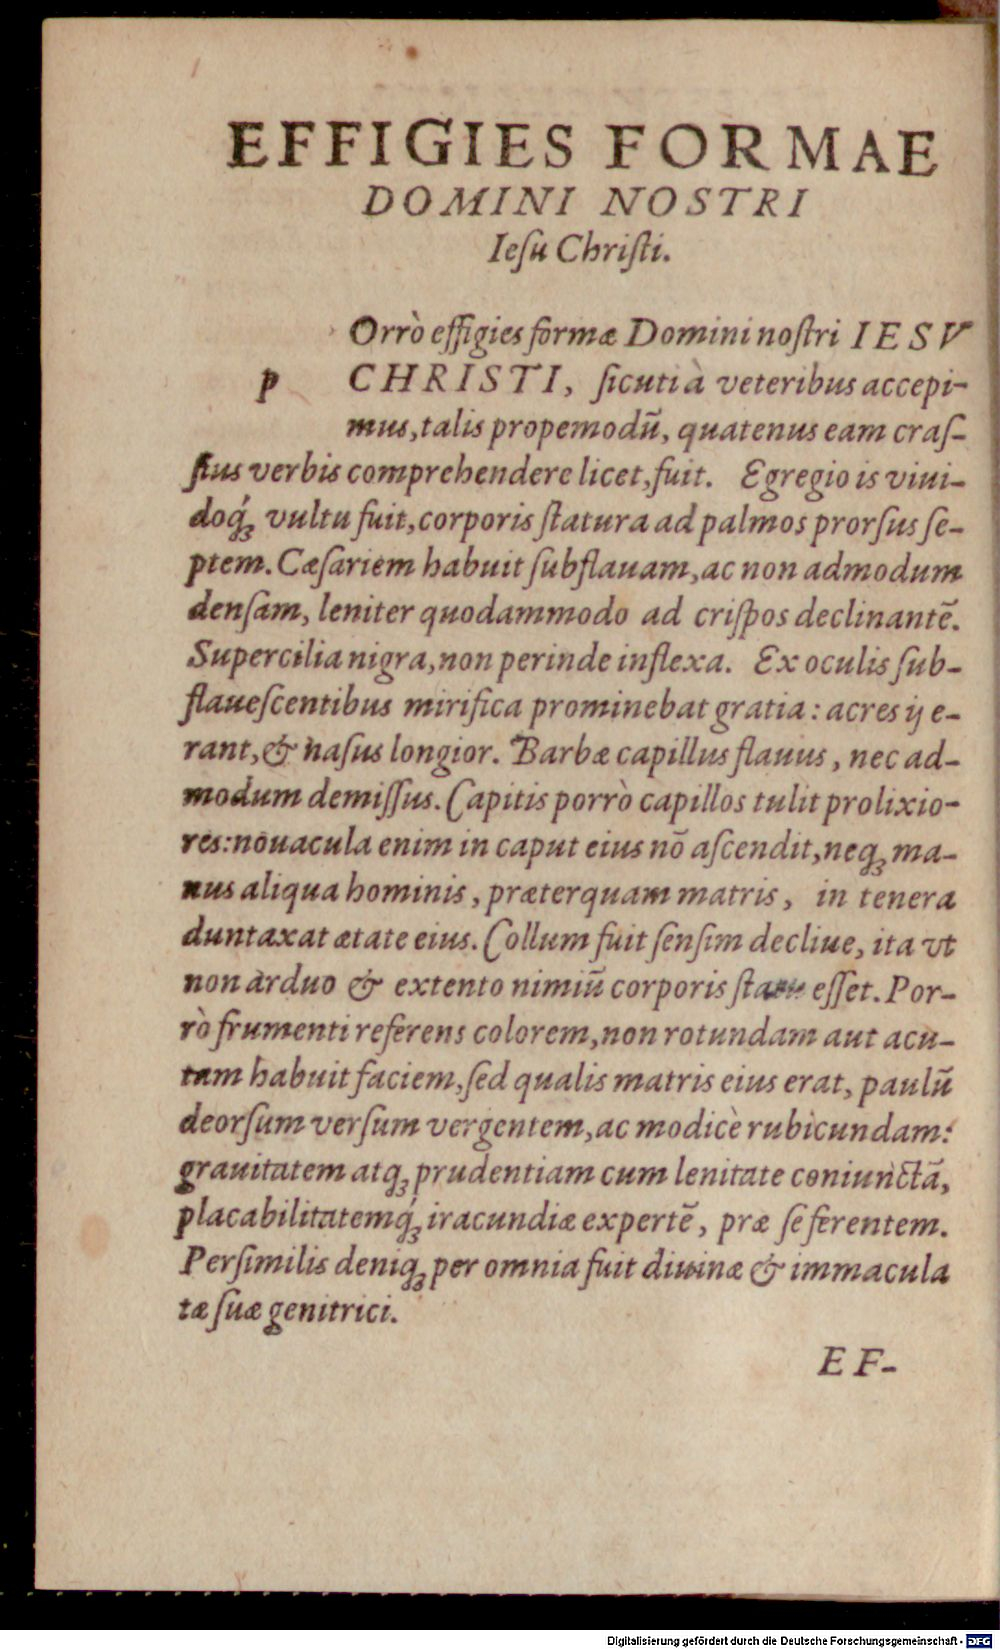 EFFIGIES FORMAE
DOMINI NOSTRI
Ieſu Chriſti.
Orrò effigies formæ Domini noſtri IESV
p CHRISTI, ſicuti à veteribus accepi-
mus, talis propemodū, quatenus eam craſ-
ſius verbis comprehendere licet, fuit. Egregio is viui-
doq́ꝫ vultu fuit, corporis ſtatura ad palmos prorſus ſe-
ptem. Cæſariem habuit ſubflauam, ac non admodum
denſam, leniter quodammodo ad criſpos declinantē.
Supercilia nigra, non perinde inflexa. Ex oculis ſub-
flaueſcentibus mirifica prominebat gratia: acres ij e-
rant, & naſus longior. Barbæ capillus flauus, nec ad-
modum demiſſus. Capitis porrò capillos tulit prolixio-
res: nouacula enim in caput eius nō aſcendit, neqꝫ ma-
nus aliqua hominis, præterquam matris, in tenera
duntaxat ætate eius. Collum fuit ſenſim decliue, ita vt
non arduo & extento nimiū corporis ſtatu eſſet. Por-
rò frumenti referens colorem, non rotundam aut acu-
tam habuit faciem, ſed qualis matris eius erat, paulū
deorſum verſum vergentem, ac modicè rubicundam:
grauitatem atqꝫ prudentiam cum lenitate coniunctā,
placabilitatemq́ꝫ iracundiæ expertē, præ ſe ferentem.
Perſimilis deniqꝫ per omnia fuit diuinæ & immacula
tæ ſuæ genitrici.
EF-
Digitalisierung gefördert durch die Deutsche Forschungsgemeinschaft - DFG